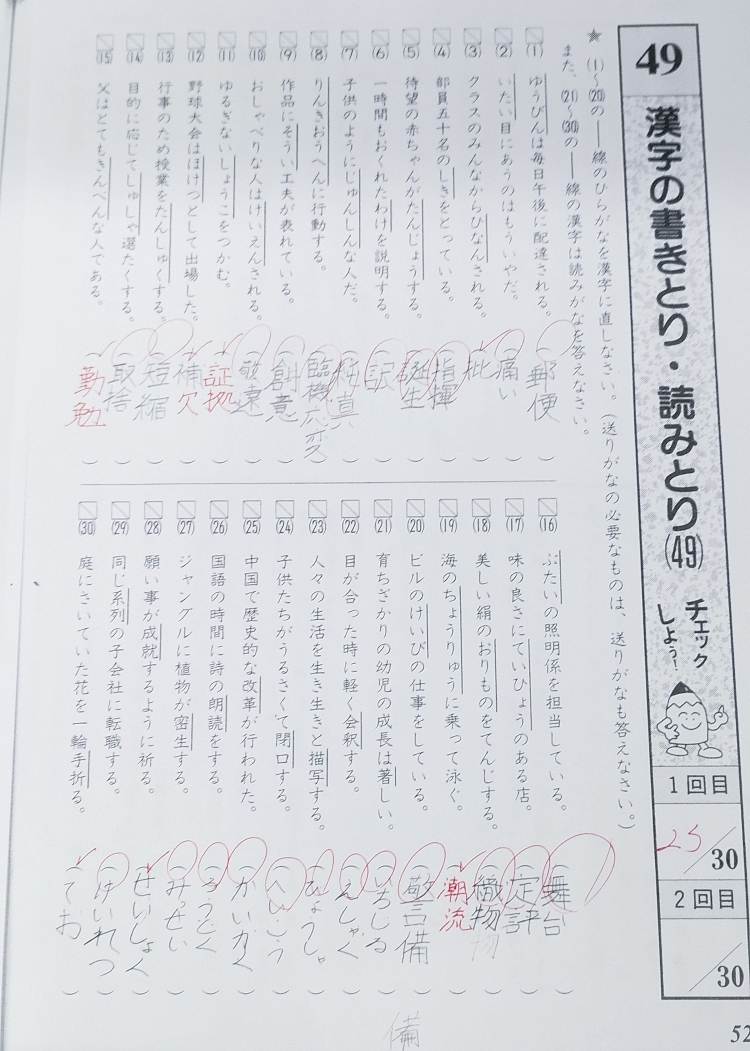 49
漢字の書きとり・読みとり(49)
チェックしよう!
1回目
25/30
2回目
/30
★ (1)~(20)の──線のひらがなを漢字に直しなさい。(送りがなの必要なものは、送りがなも答えなさい。)
また、(21)~(30)の──線の漢字は読みがなを答えなさい。
(1) ゆうびんは毎日午後に配達される。(郵便)
(2) いたい目にあうのはもういやだ。(痛い)
(3) クラスのみんなからひなんされる。(批)
(4) 部員五十名のしきをとっている。(指揮)
(5) 待望の赤ちゃんがたんじょうする。(誕生)
(6) 一時間もおくれたわけを説明する。(訳)
(7) 子供のようにじゅんしんな人だ。(純真)
(8) りんきおうへんに行動する。(臨機応変)
(9) 作品にそうい工夫が表れている。(創意)
(10) おしゃべりな人はけいえんされる。(敬遠)
(11) ゆるぎないしょうこをつかむ。(証拠)
(12) 野球大会はほけつとして出場した。(補欠)
(13) 行事のため授業をたんしゅくする。(短縮)
(14) 目的に応じてしゅしゃ選たくする。(取捨)
(15) 父はとてもきんべんな人である。(勤勉)
(16) ぶたいの照明係を担当している。(舞台)
(17) 味の良さにていひょうのある店。(定評)
(18) 美しい絹のおりものをてんじする。(織物)
(19) 海のちょうりゅうに乗って泳ぐ。(潮流)
(20) ビルのけいびの仕事をしている。(警備)
(21) 育ちざかりの幼児の成長は著しい。(いちじる)
(22) 目が合った時に軽く会釈する。(えしゃく)
(23) 人々の生活を生き生きと描写する。(びょうしゃ)
(24) 子供たちがうるさくて閉口する。(へいこう)
(25) 中国で歴史的な改革が行われた。(かいかく)
(26) 国語の時間に詩の朗読をする。(ろうどく)
(27) ジャングルに植物が密生する。(みっせい)
(28) 願い事が成就するように祈る。(せいしょく)
(29) 同じ系列の子会社に転職する。(けいれつ)
(30) 庭にさいていた花を一輪手折る。(てお)
備
52